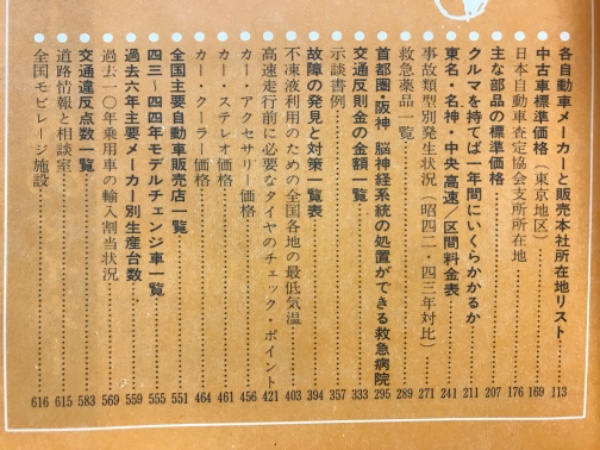 各自動車メーカーと販売本社所在地リスト………113
中古車標準価格（東京地区）………169
日本自動車査定協会支所所在地………176
主な部品の標準価格………207
クルマを持てば一年間にいくらかかるか………211
東名・名神・中央高速／区間料金表………241
事故類型別発生状況（昭四二・四三年対比）………271
救急薬品一覧………289
首都圏・阪神 脳神経系統の処置ができる救急病院………295
交通反則金の金額一覧………333
示談書例………357
故障の発見と対策一覧表………394
不凍液利用のための全国各地の最低気温………403
高速走行前に必要なタイヤのチェック・ポイント………421
カー・アクセサリー価格………456
カー・ステレオ価格………461
カー・クーラー価格………464
全国主要自動車販売店一覧………551
四三〜四四年モデルチェンジ車一覧………555
過去六年主要メーカー別生産台数………559
過去一〇年乗用車の輸入割当状況………569
交通違反点数一覧………583
道路情報と相談室………615
全国モビレージ施設………616